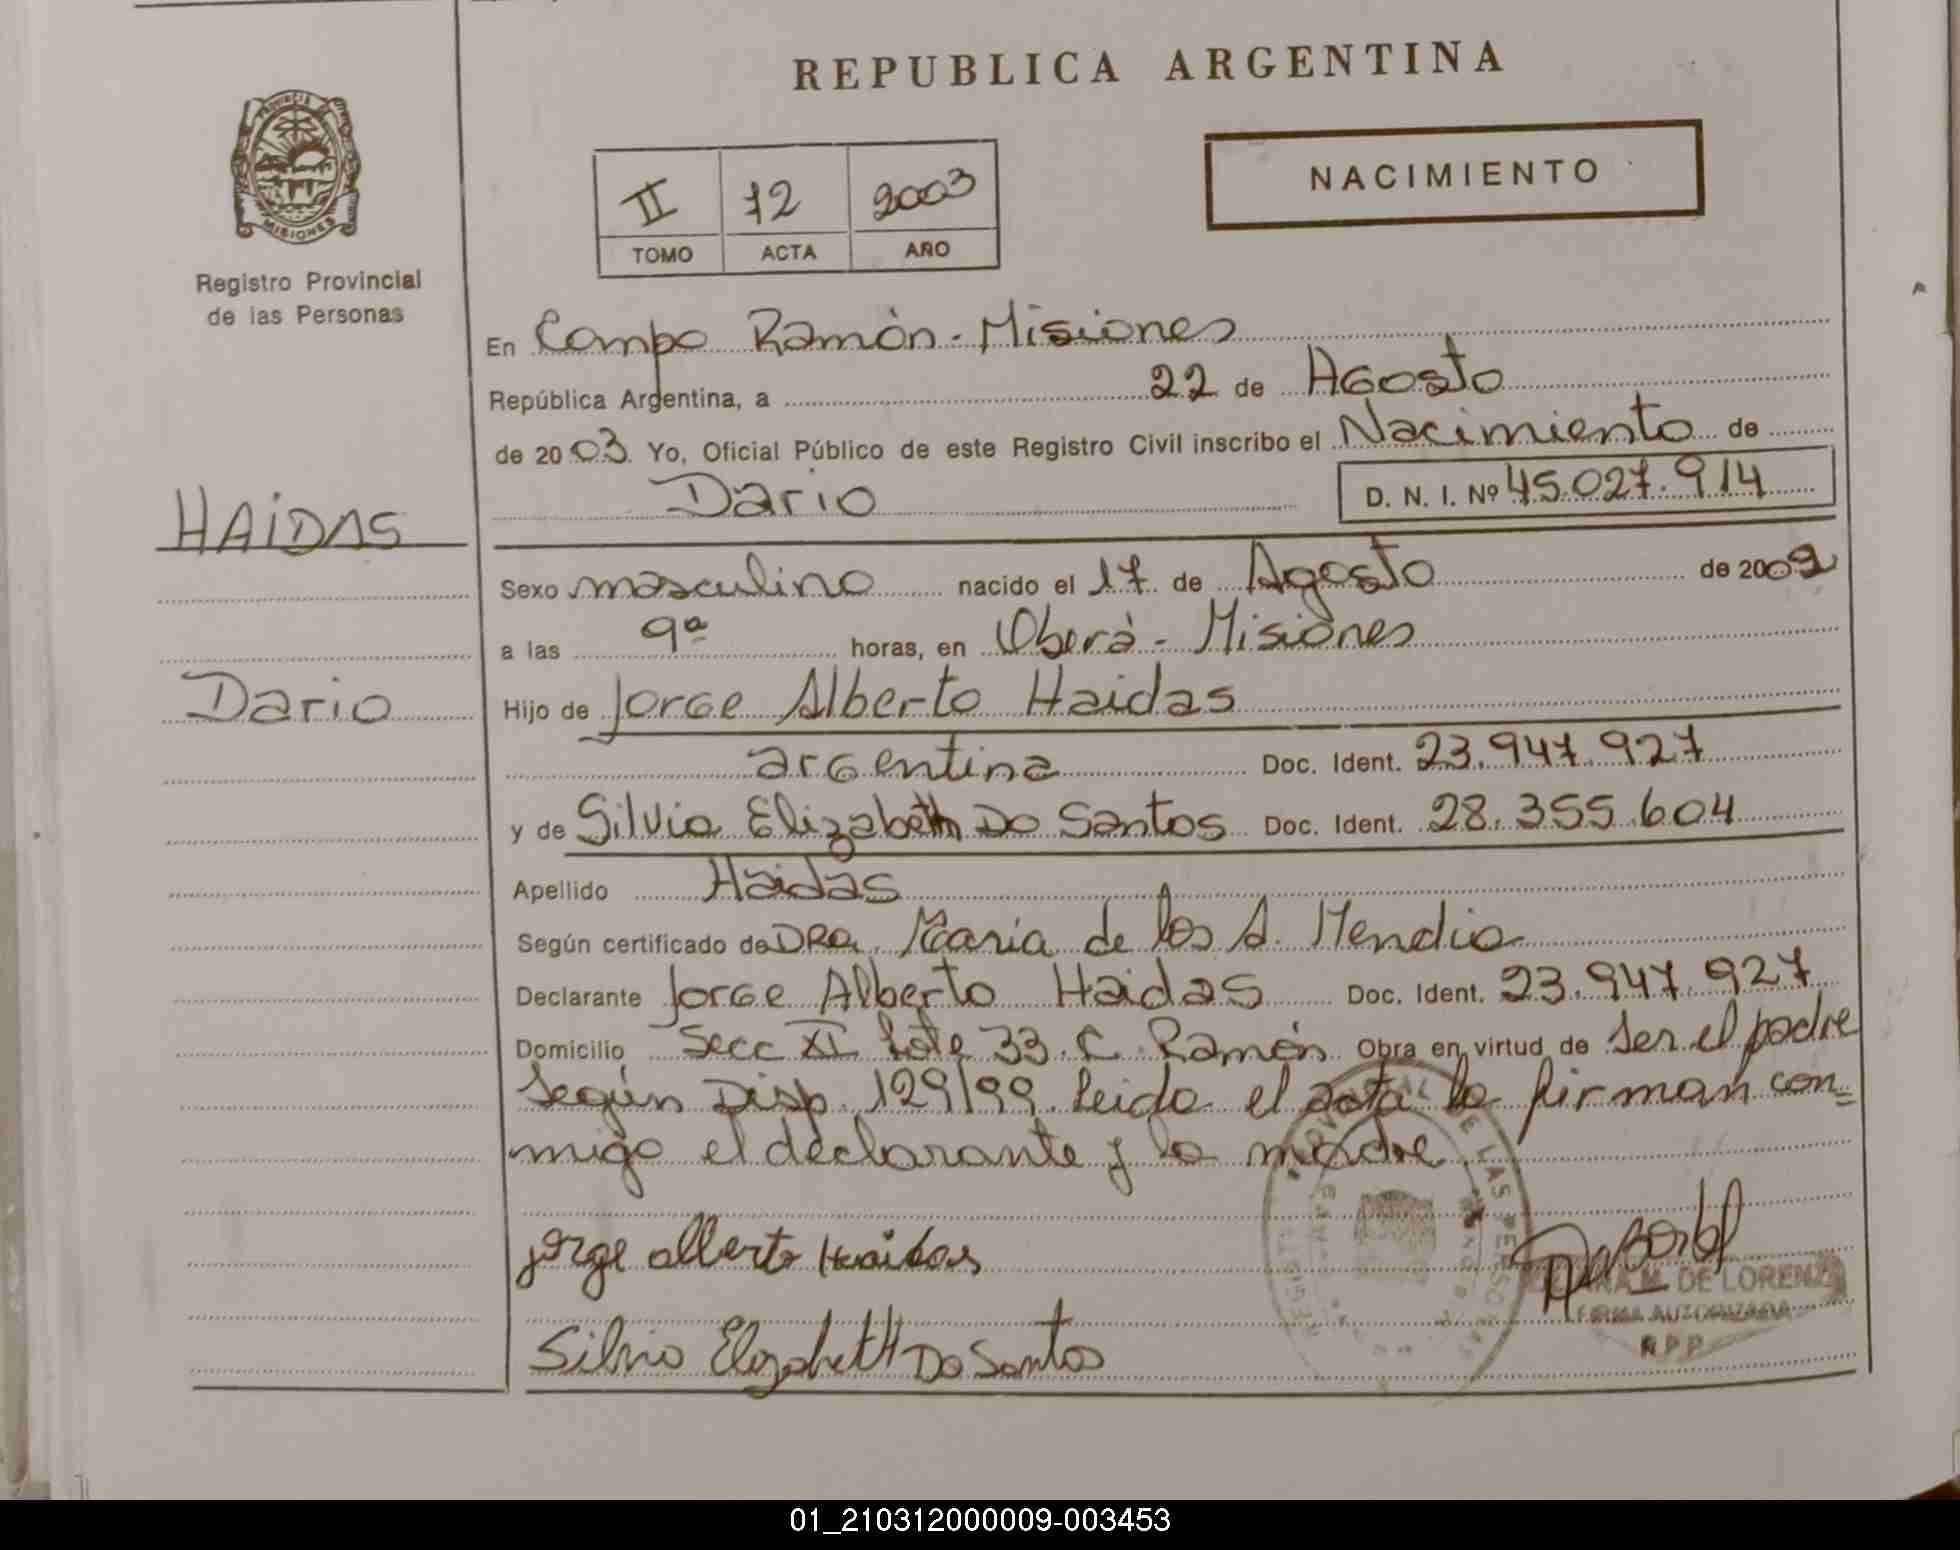 REPUBLICA ARGENTINA
PROVINCIA DE
MISIONES
Registro Provincial
de las Personas
II 72 2003
TOMO ACTA AÑO
NACIMIENTO
En Campo Ramón - Misiones
República Argentina, a 22 de Agosto
de 2003 Yo, Oficial Público de este Registro Civil inscribo el Nacimiento de
Dario D. N. I. Nº 45.027.914
HAIDAS
Sexo masculino nacido el 17 de Agosto de 2002
a las 9ª horas, en Oberá - Misiones
Dario
Hijo de Jorge Alberto Haidas
argentina Doc. Ident. 23.947.927
y de Silvia Elizabeth Do Santos Doc. Ident. 28.355.604
Apellido Haidas
Según certificado de DRA. María de los A. Mendia
Declarante Jorge Alberto Haidas Doc. Ident. 23.947.927
Domicilio Secc XI Lote 33. C. Ramón Obra en virtud de ser el padre
según Disp. 129/99. Leida el acta la firman con=
migo el declarante y la madre.
jorge alberto Haidas
Silvia Elizabeth Do Santos
M. DE LORENZ
FIRMA AUTORIZADA
R.P.P.
01_210312000009-003453